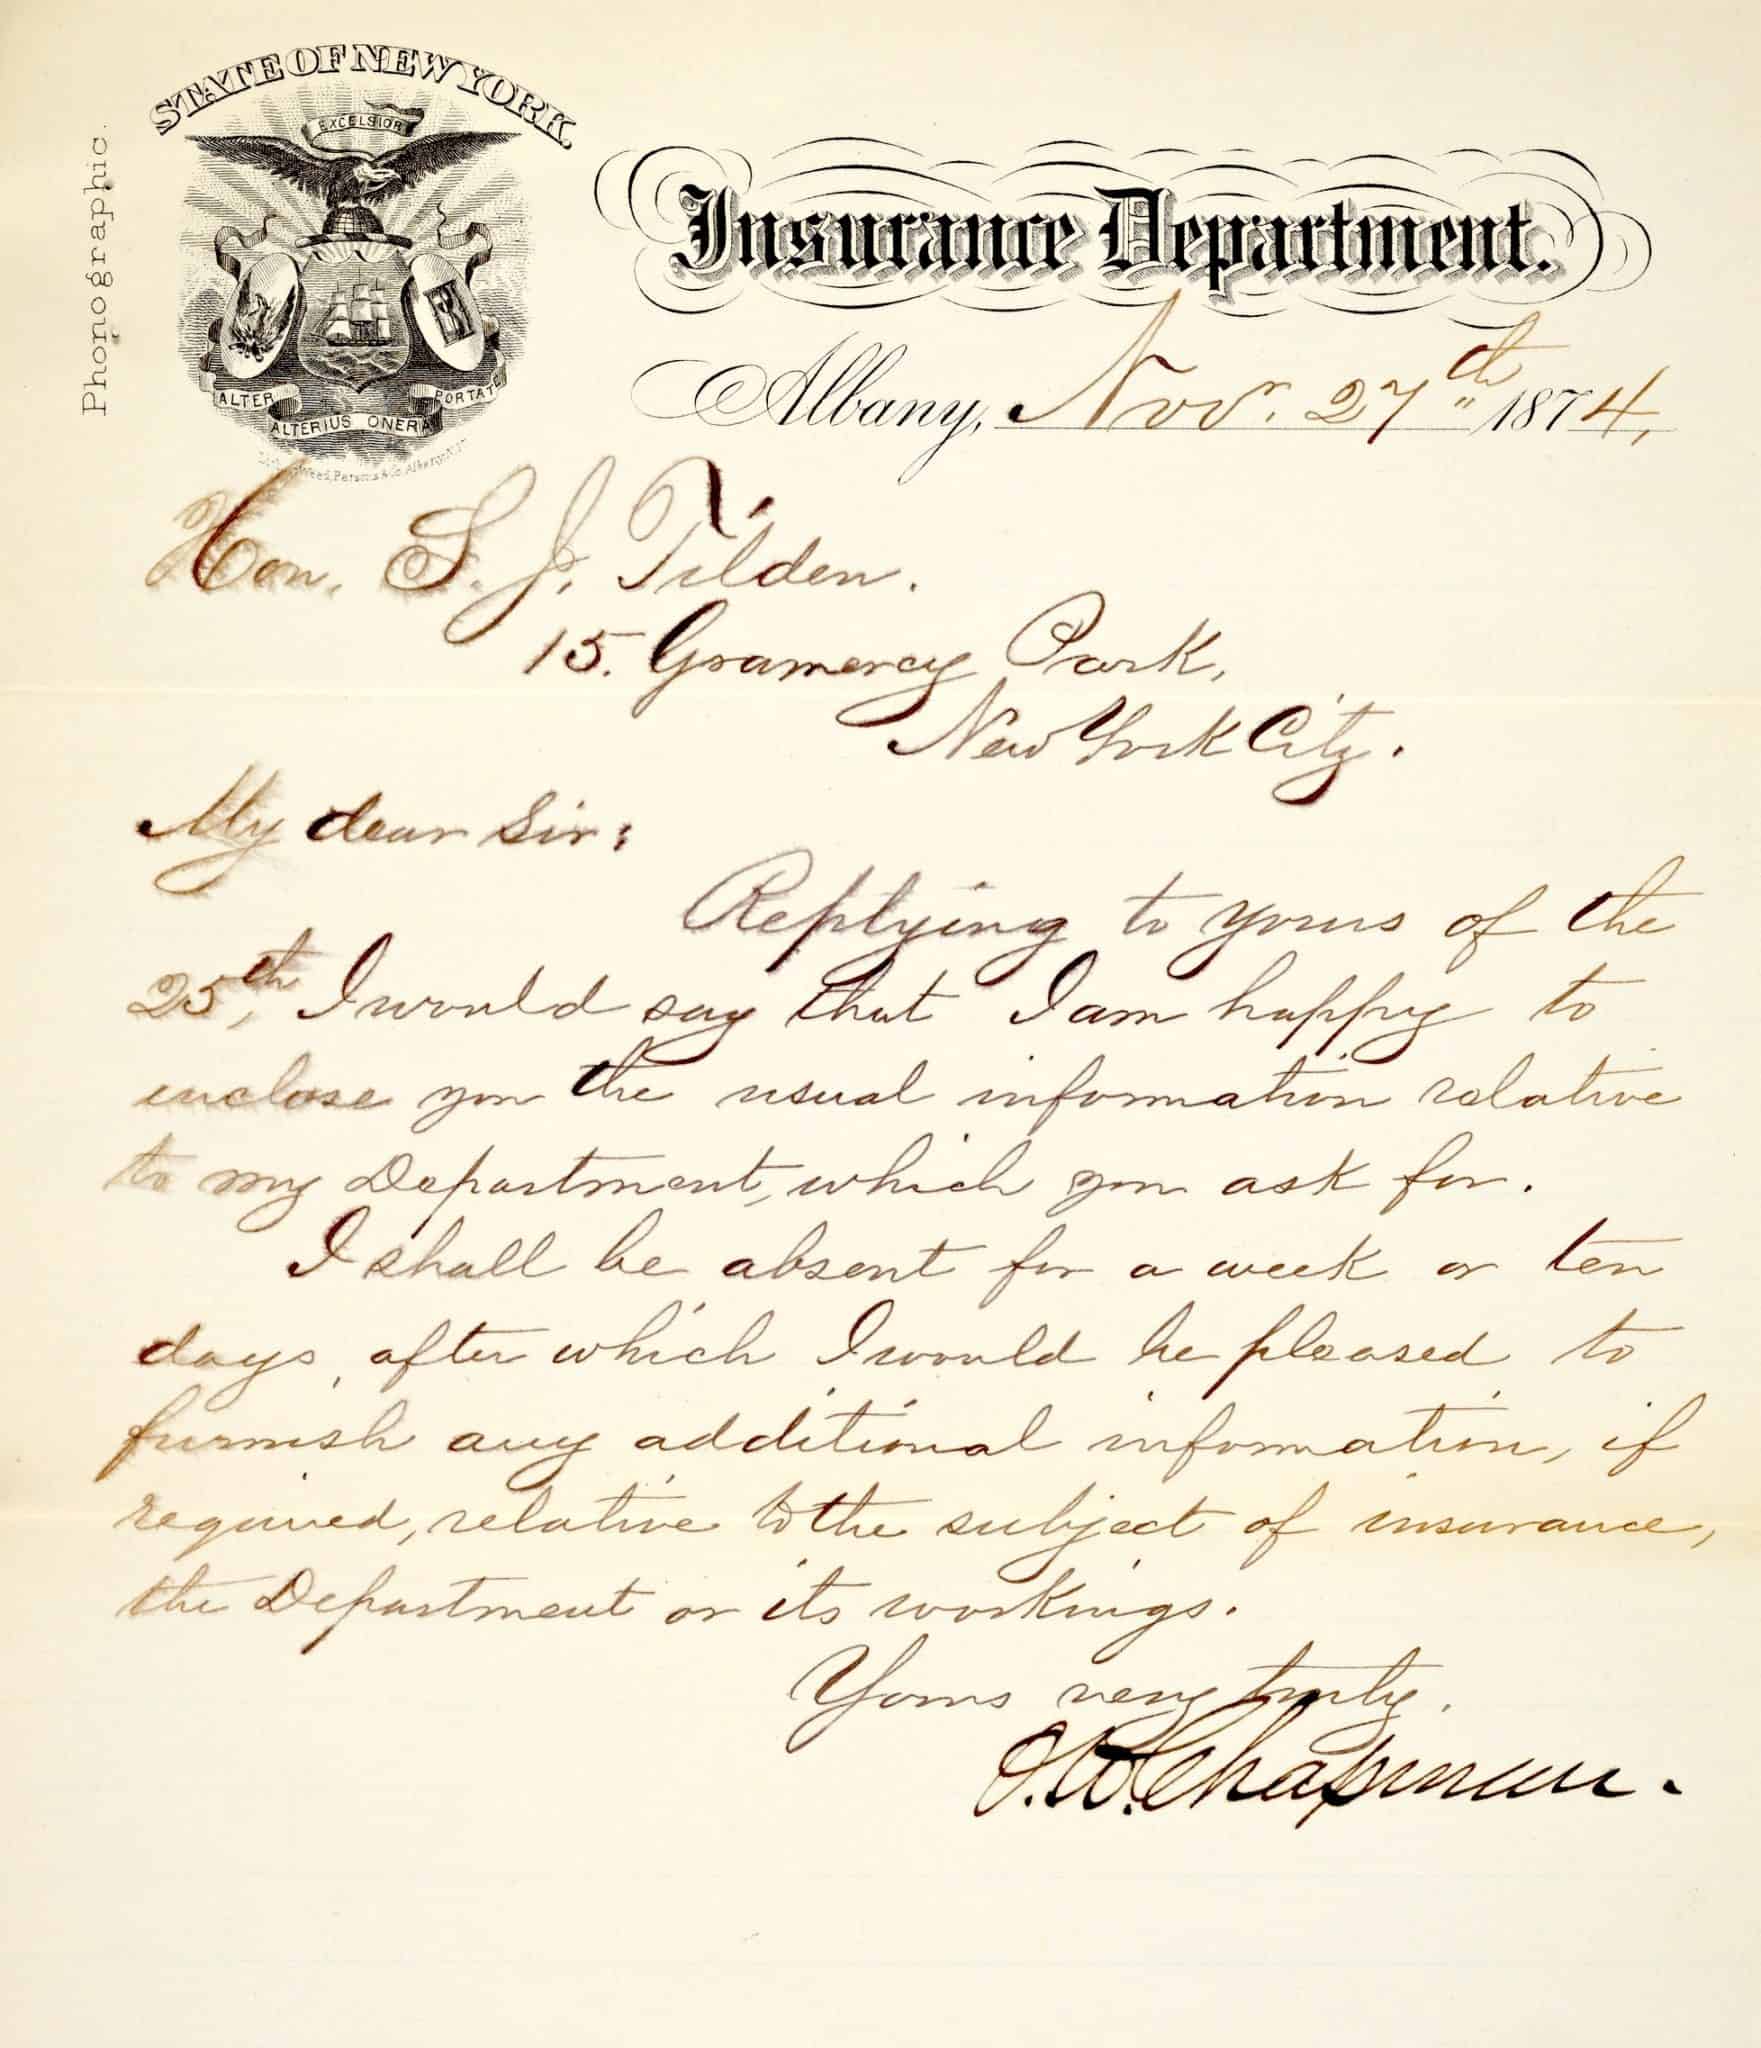 Phonographic.
STATE OF NEW YORK.
EXCELSIOR
ALTER
ALTERIUS ONERA
PORTATE
Weed, Parsons & Co. Albany, N.Y.
Insurance Department.
Albany, Nov. 27th 1874,
Hon. S. J. Tilden.
15. Gramercy Park,
New York City.
My dear Sir:
Replying to yours of the
25th, I would say that I am happy to
enclose you the usual information relative
to my Department, which you ask for.
I shall be absent for a week or ten
days, after which I would be pleased to
furnish any additional information, if
required, relative to the subject of insurance,
the Department or its workings.
Yours very truly,
O. W. Chapman.